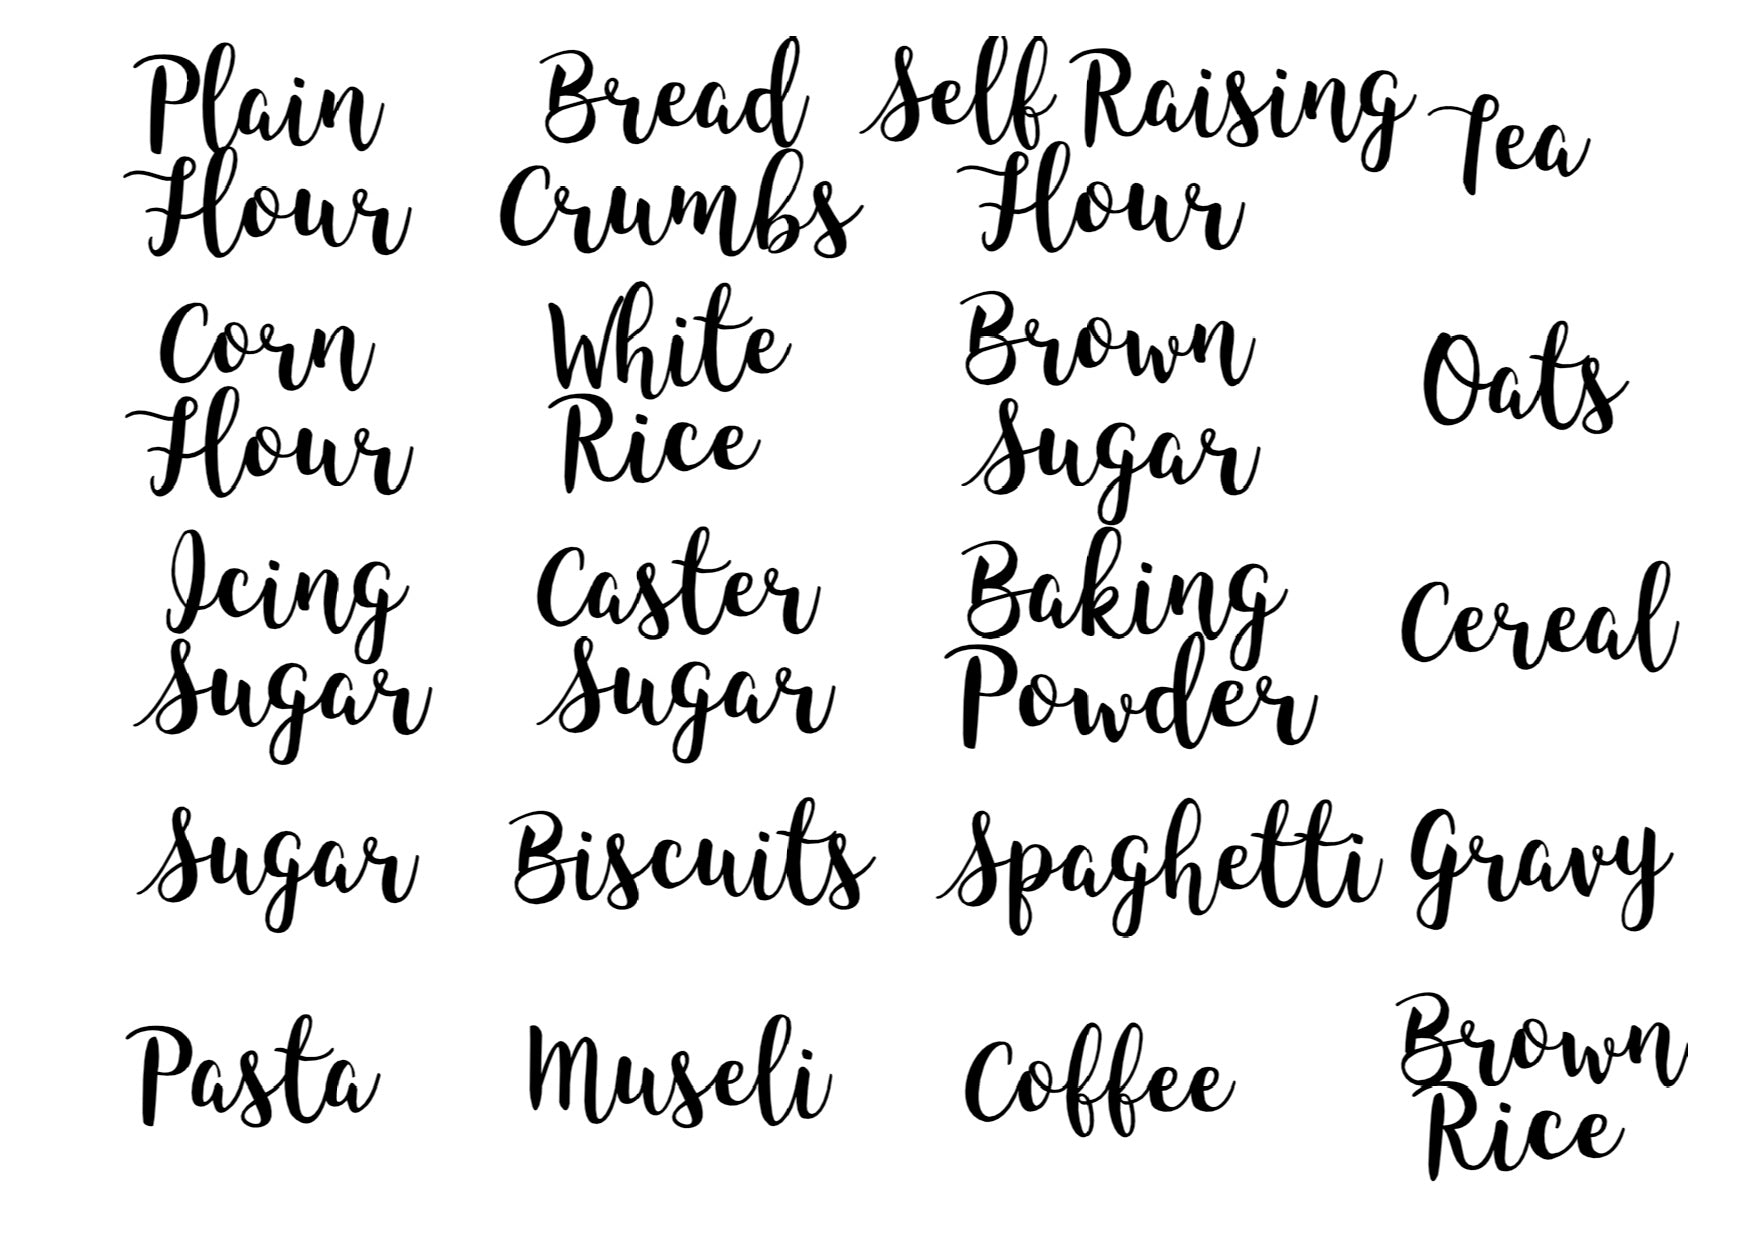 Plain
Flour
Bread
Crumbs
Self Raising
Flour
Tea
Corn
Flour
White
Rice
Brown
Sugar
Oats
Icing
Sugar
Caster
Sugar
Baking
Powder
Cereal
Sugar
Biscuits
Spaghetti
Gravy
Pasta
Museli
Coffee
Brown
Rice